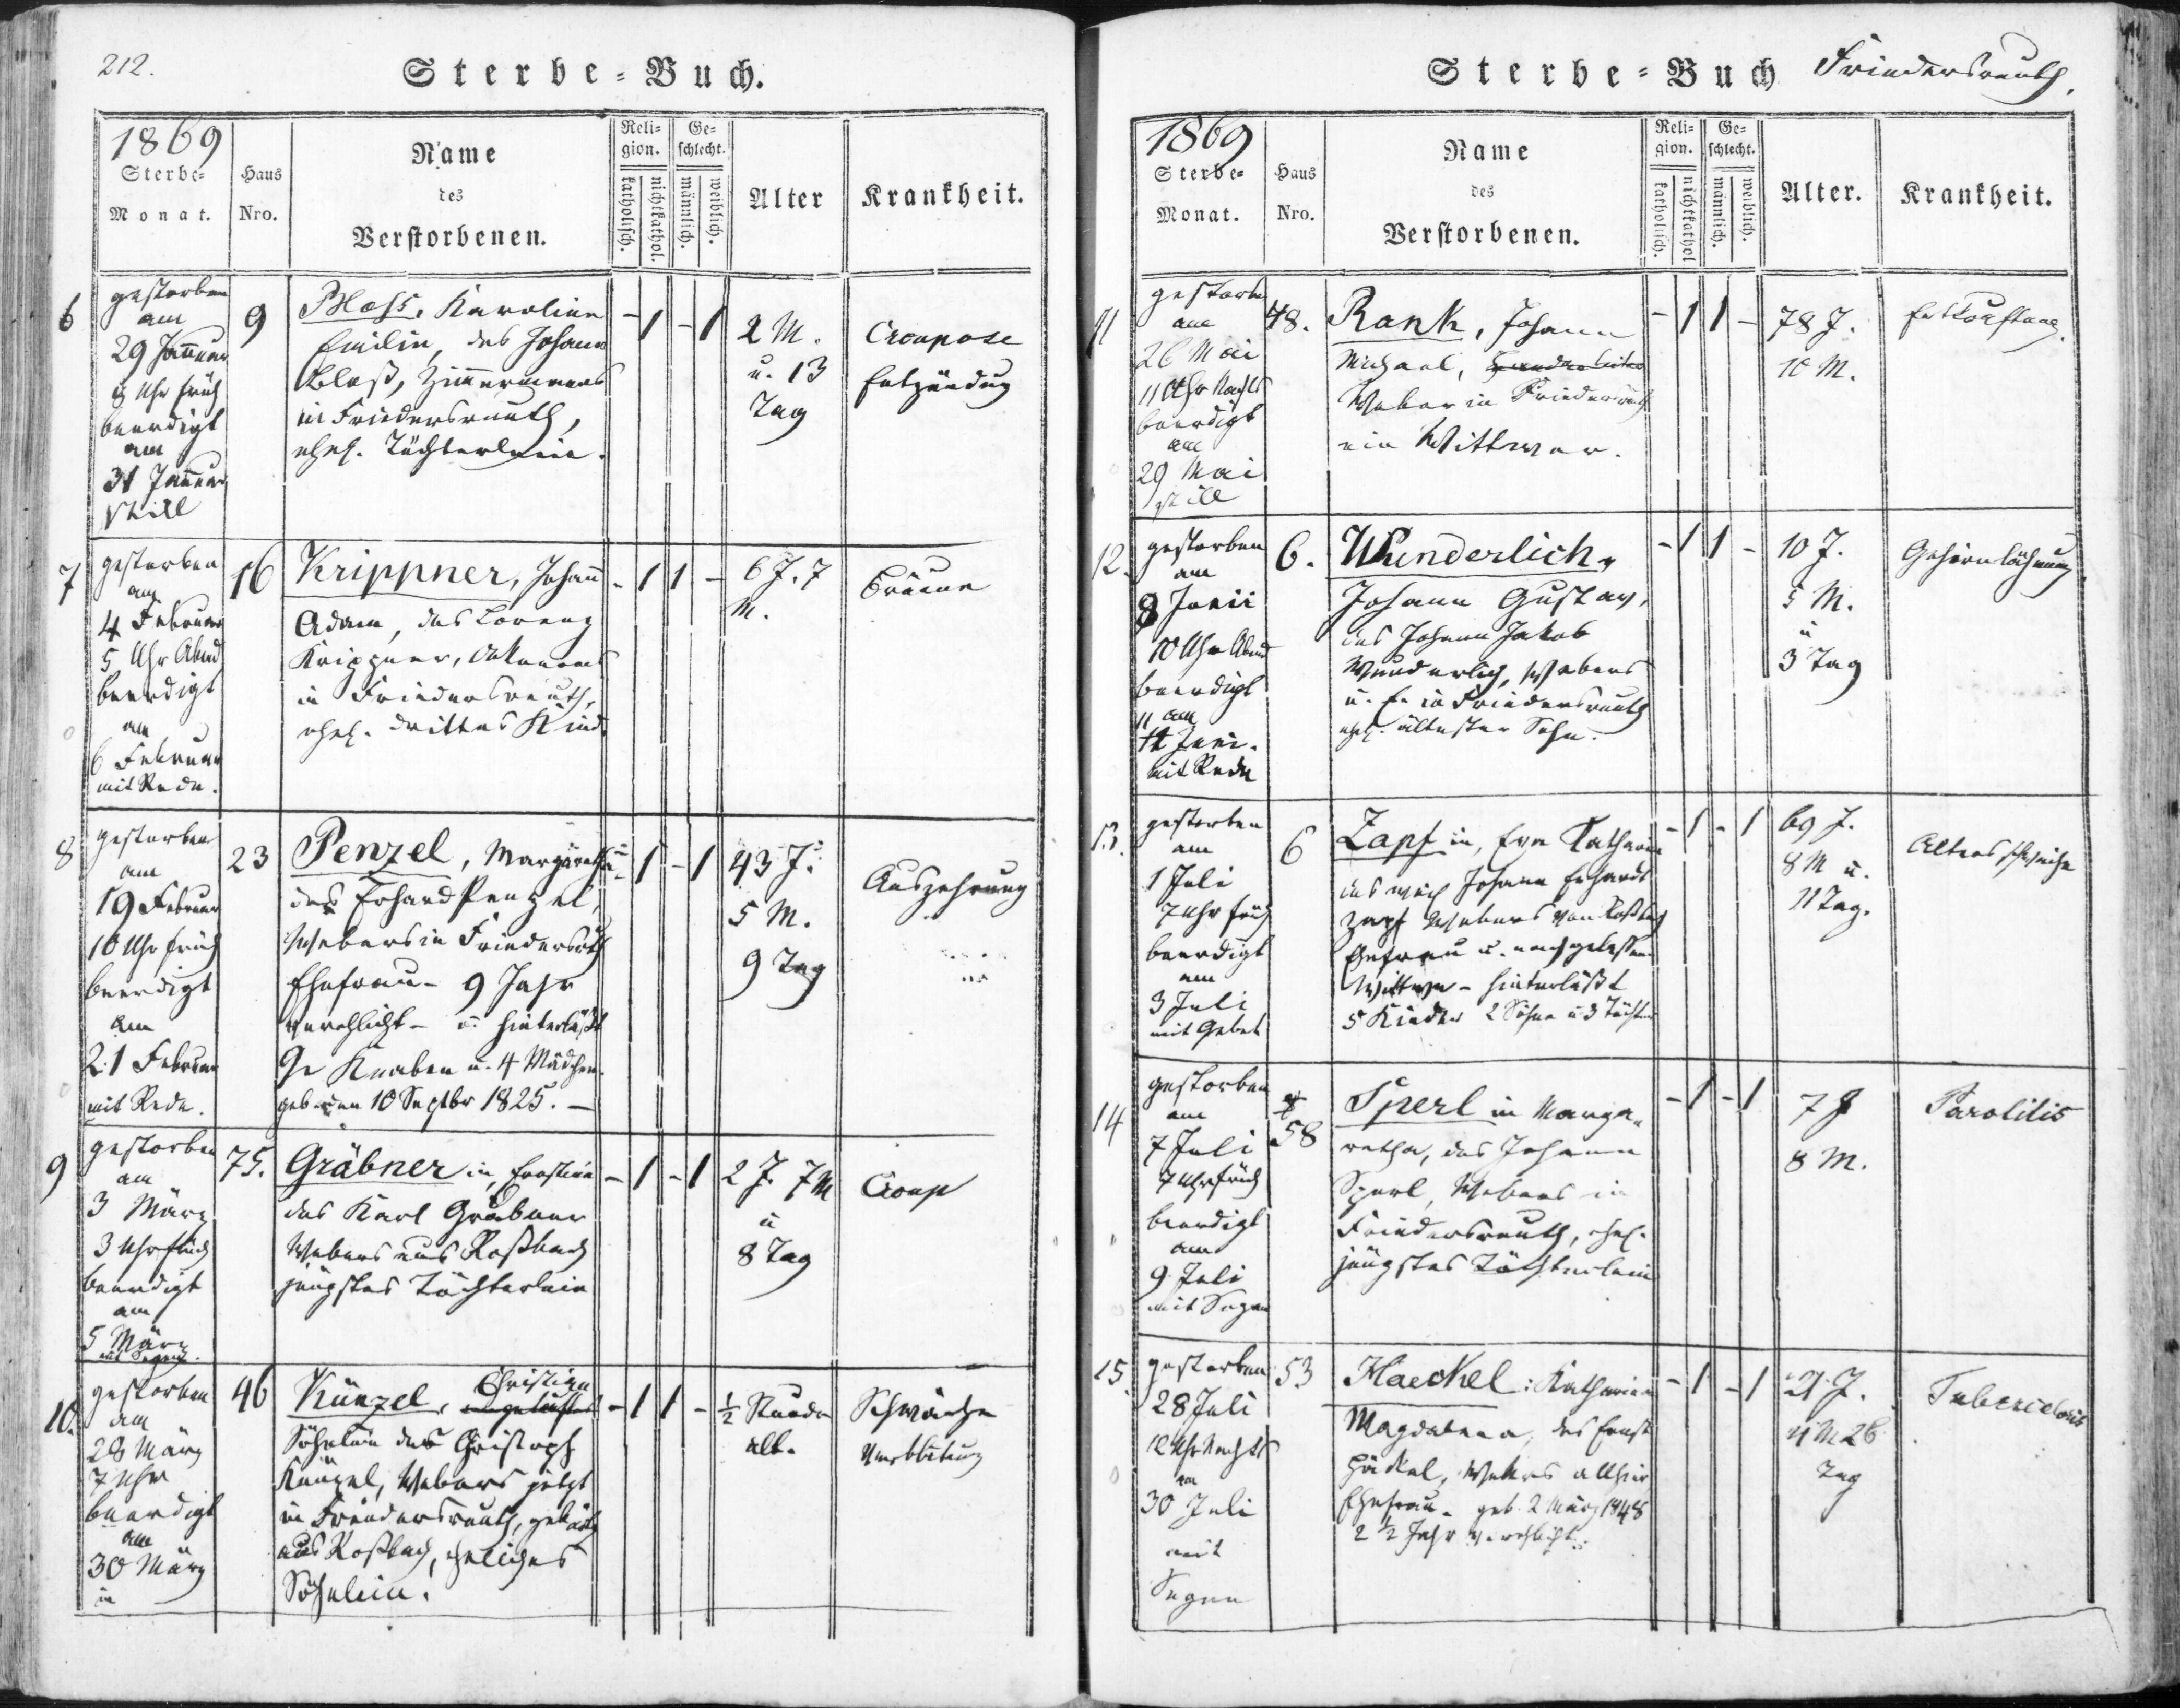 212.
Sterbe-Buch.
1869
Sterbe-
Monat.
Haus
Nro.
Name
des
Verstorbenen.
Reli-
gion.
katholisch.
nichtkathol.
Ge-
schlecht.
männlich.
weiblich.
Alter
Krankheit.
6
gestorben
am
29 Jannuar
Uhr früh
beerdigt
am
31 Jannuar
still
9
Bloss, Karoline
Emilie, des Johann
Bloß, Zimmermanns
in Friedersreuth,
ehel. Töchterlein.
- 1 - 1
2 M.
u. 13
Tag
Croupose
Entzündug
7
gestorben
am
4 Februar
5 Uhr Abend
beerdigt
am
6 Februar
mit Rede.
16
Krippner, Johann
Adam, des Lorenz
Krippner, Oekonoms
in Friedersreuth,
ehel. drittes Kind.
- 1 1 -
6 J. 7
M.
Bräune
8
gestorben
am
19 Februar
10 Uhr früh
beerdigt
am
21 Februar
mit Rede.
23
Penzel, Margaretha
des Erhard Penzel,
Webers in Friedersrth
Ehefrau - 9 Jahr
verehlicht - u. hinterläßt
Knaben u. 4 Mädchen.
geb. den 10 Septbr 1825. -
- 1 - 1
43 J.
5 M.
9 Tag
Auszehrung
9
gestorben
am
3 März
3 Uhr früh
beerdigt
am
5 März
mit Segen.
75.
Gräbner in, Ernstine
des Karl Gräbner
Webers aus Roßbach
jüngstes Töchterlein
- 1 - 1
2 J. 7 M
u
8 Tag
Croup
10.
gestorben
am
28 März
7 Uhr
beerdigt
am
30 März
in
46
Künzel, Christian
ungetauftes
Söhnlein des Christoph
Künzel, Webers jetzt
in Friedersreuth, gebürtg
aus Roßbach, eheliches
Söhnlein.
- 1 1 -
½ Stunde
alt.
Schwäche
Verblutung
Sterbe-Buch Friedersreuth.
1869
Sterbe-
Monat.
Haus
Nro.
Name
des
Verstorbenen.
Reli-
gion.
katholisch.
nichtkathol
Ge-
schlecht.
männlich.
weiblich.
Alter.
Krankheit.
11
gestorb
am
26 Mai
11 Uhr Nachts
beerdigt
am
29 Mai
still
48.
Rank, Johann
Michael,
Weber in Friedersreuth
ein Wittwer.
- 1 1 -
78 J.
10 M.
Entkräftung.
12.
gestorben
am
8 Junii
10 Uhr Abend
beerdigt
am
11 Juni.
mit Rede
6.
Wunderlich,
Johann Gustav,
des Johann Jakob
Wunderlich, Webers
u. E. in Friedersreuth
ehel. ältester Sohn.
- 1 1 -
10 J.
5 M.
u
3 Tag
Gehirnlähmung
13.
gestorben
am
1 Juli
7 Uhr früh
beerdigt
am
3 Juli
mit Gebet
6
Zapf in, Eva Katharina
des weil Johann Erhardt
Zapf Webers von Roßbach
Ehefrau u. nachgelassene
Wittwe - hinterläßt
5 Kinder 2 Söhne u 3 Töchter
- 1 - 1
69 J.
8 M u.
11 Tag.
Altersschwäche
14
gestorben
am
7 Juli
7 Uhr früh
beerdigt
am
9 Juli
mit Segen
58
Sperl in Marga-
retha, des Johann
Sperl, Webers in
Friedersreuth, ehel.
jüngstes Töchterlein
- 1 - 1
7 J
8 M.
Parotitis
15.
gestorben
28 Juli
12 Uhr Nachts
am
30 Juli
mit
Segen
53
Haeckel: Katharina
Magdalena, des Ernst
Häckel, Webers allhier
Ehefrau. geb. 2 März 1848
2 ½ Jahr verehlicht.
- 1 - 1
21 J.
4 M 26
Tag
Tuberculosis